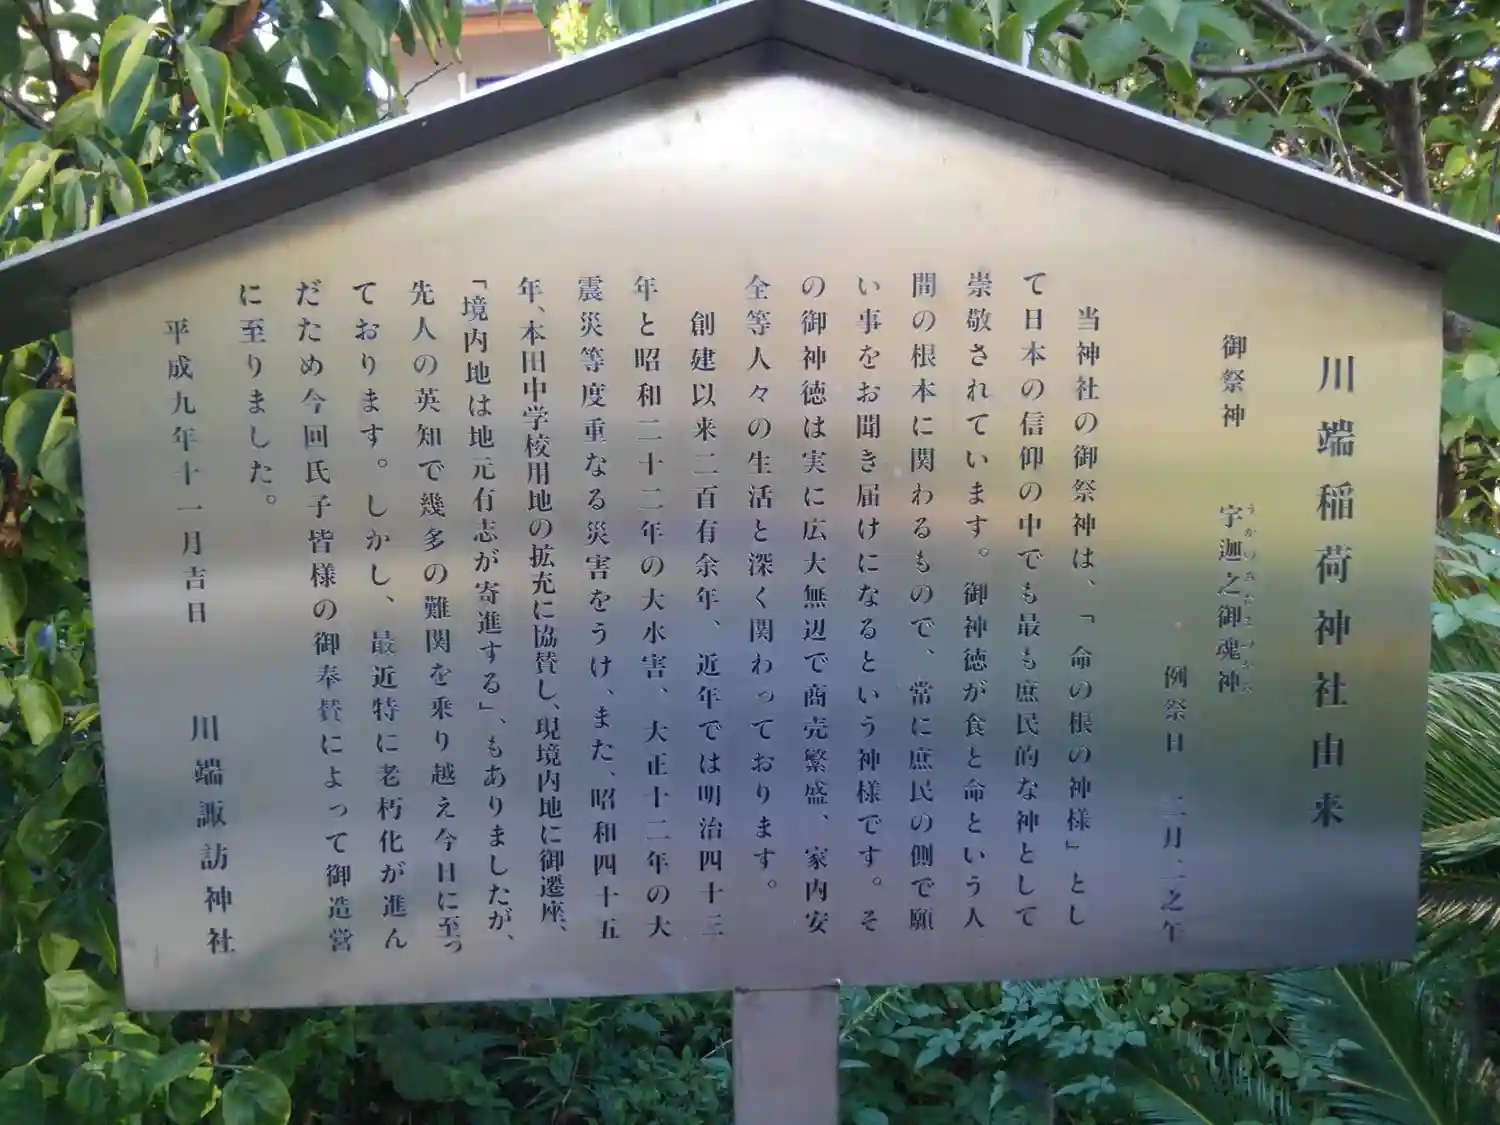 川端稲荷神社由来
御祭神　宇迦之御魂神
例祭日　二月二之午
当神社の御祭神は、「命の根の神様」とし
て日本の信仰の中でも最も庶民的な神として
崇敬されています。御神徳が食と命という人
間の根本に関わるもので、常に庶民の側で願
い事をお聞き届けになるという神様です。そ
の御神徳は実に広大無辺で商売繁盛、家内安
全等人々の生活と深く関わっております。
創建以来二百有余年、近年では明治四十三
年と昭和二十二年の大水害、大正十二年の大
震災等度重なる災害をうけ、また、昭和四十五
年、本田中学校用地の拡充に協賛し、現境内地に御遷座、
「境内地は地元有志が寄進する」、もありましたが、
先人の英知で幾多の難関を乗り越え今日に至っ
ております。しかし、最近特に老朽化が進ん
だため今回氏子皆様の御奉賛によって御造営
に至りました。
平成九年十一月吉日
川端諏訪神社